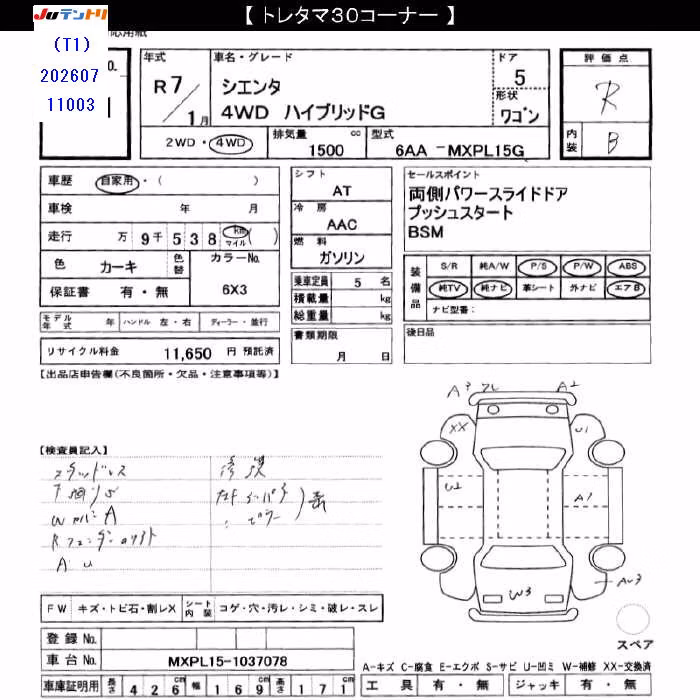 【 トレタマ30コーナー 】
JUテントリ
(T1)
202607
11003
応用紙
o.
年式
R 7 / 1月
車名・グレード
シエンタ
4WD ハイブリッドG
ドア
5
形状
ワゴン
評価点
R
内装
B
2WD・4WD
排気量 cc
1500
型式
6AA -MXPL15G
車歴 自家用・( )
車検 年 月
走行 万 9千 5 3 8 km マイル ( )
色 カーキ 色替
カラーNo.
6X3
保証書 有・無
モデル年式 年 ハンドル 左・右 ディーラー・並行
リサイクル料金 11,650 円 預託済
シフト
AT
冷房
AAC
燃料
ガソリン
乗車定員 5 名
積載量 kg
総重量 kg
書類期限
月 日
セールスポイント
両側パワースライドドア
プッシュスタート
BSM
装備品
S/R 純A/W P/S P/W ABS
純TV 純ナビ 革シート 外ナビ エアB
ナビ型番：
後日品
【出品店申告欄(不良箇所・欠品・注意事項等)】
【検査員記入】
スタッドレス
W A
A U
A3
A2
XX
U1
U2
A1
W3
AU3
スペア
FW キズ・トビ石・割レX シート内装 コゲ・穴・汚レ・シミ・破レ・スレ
登録 No.
車台 No. MXPL15-1037078
車庫証明用 長さ 426cm 幅 169cm 高さ 171cm
A-キズ C-腐食 E-エクボ S-サビ U-凹ミ W-補修 XX-交換済
工具 有・無 ジャッキ 有・無